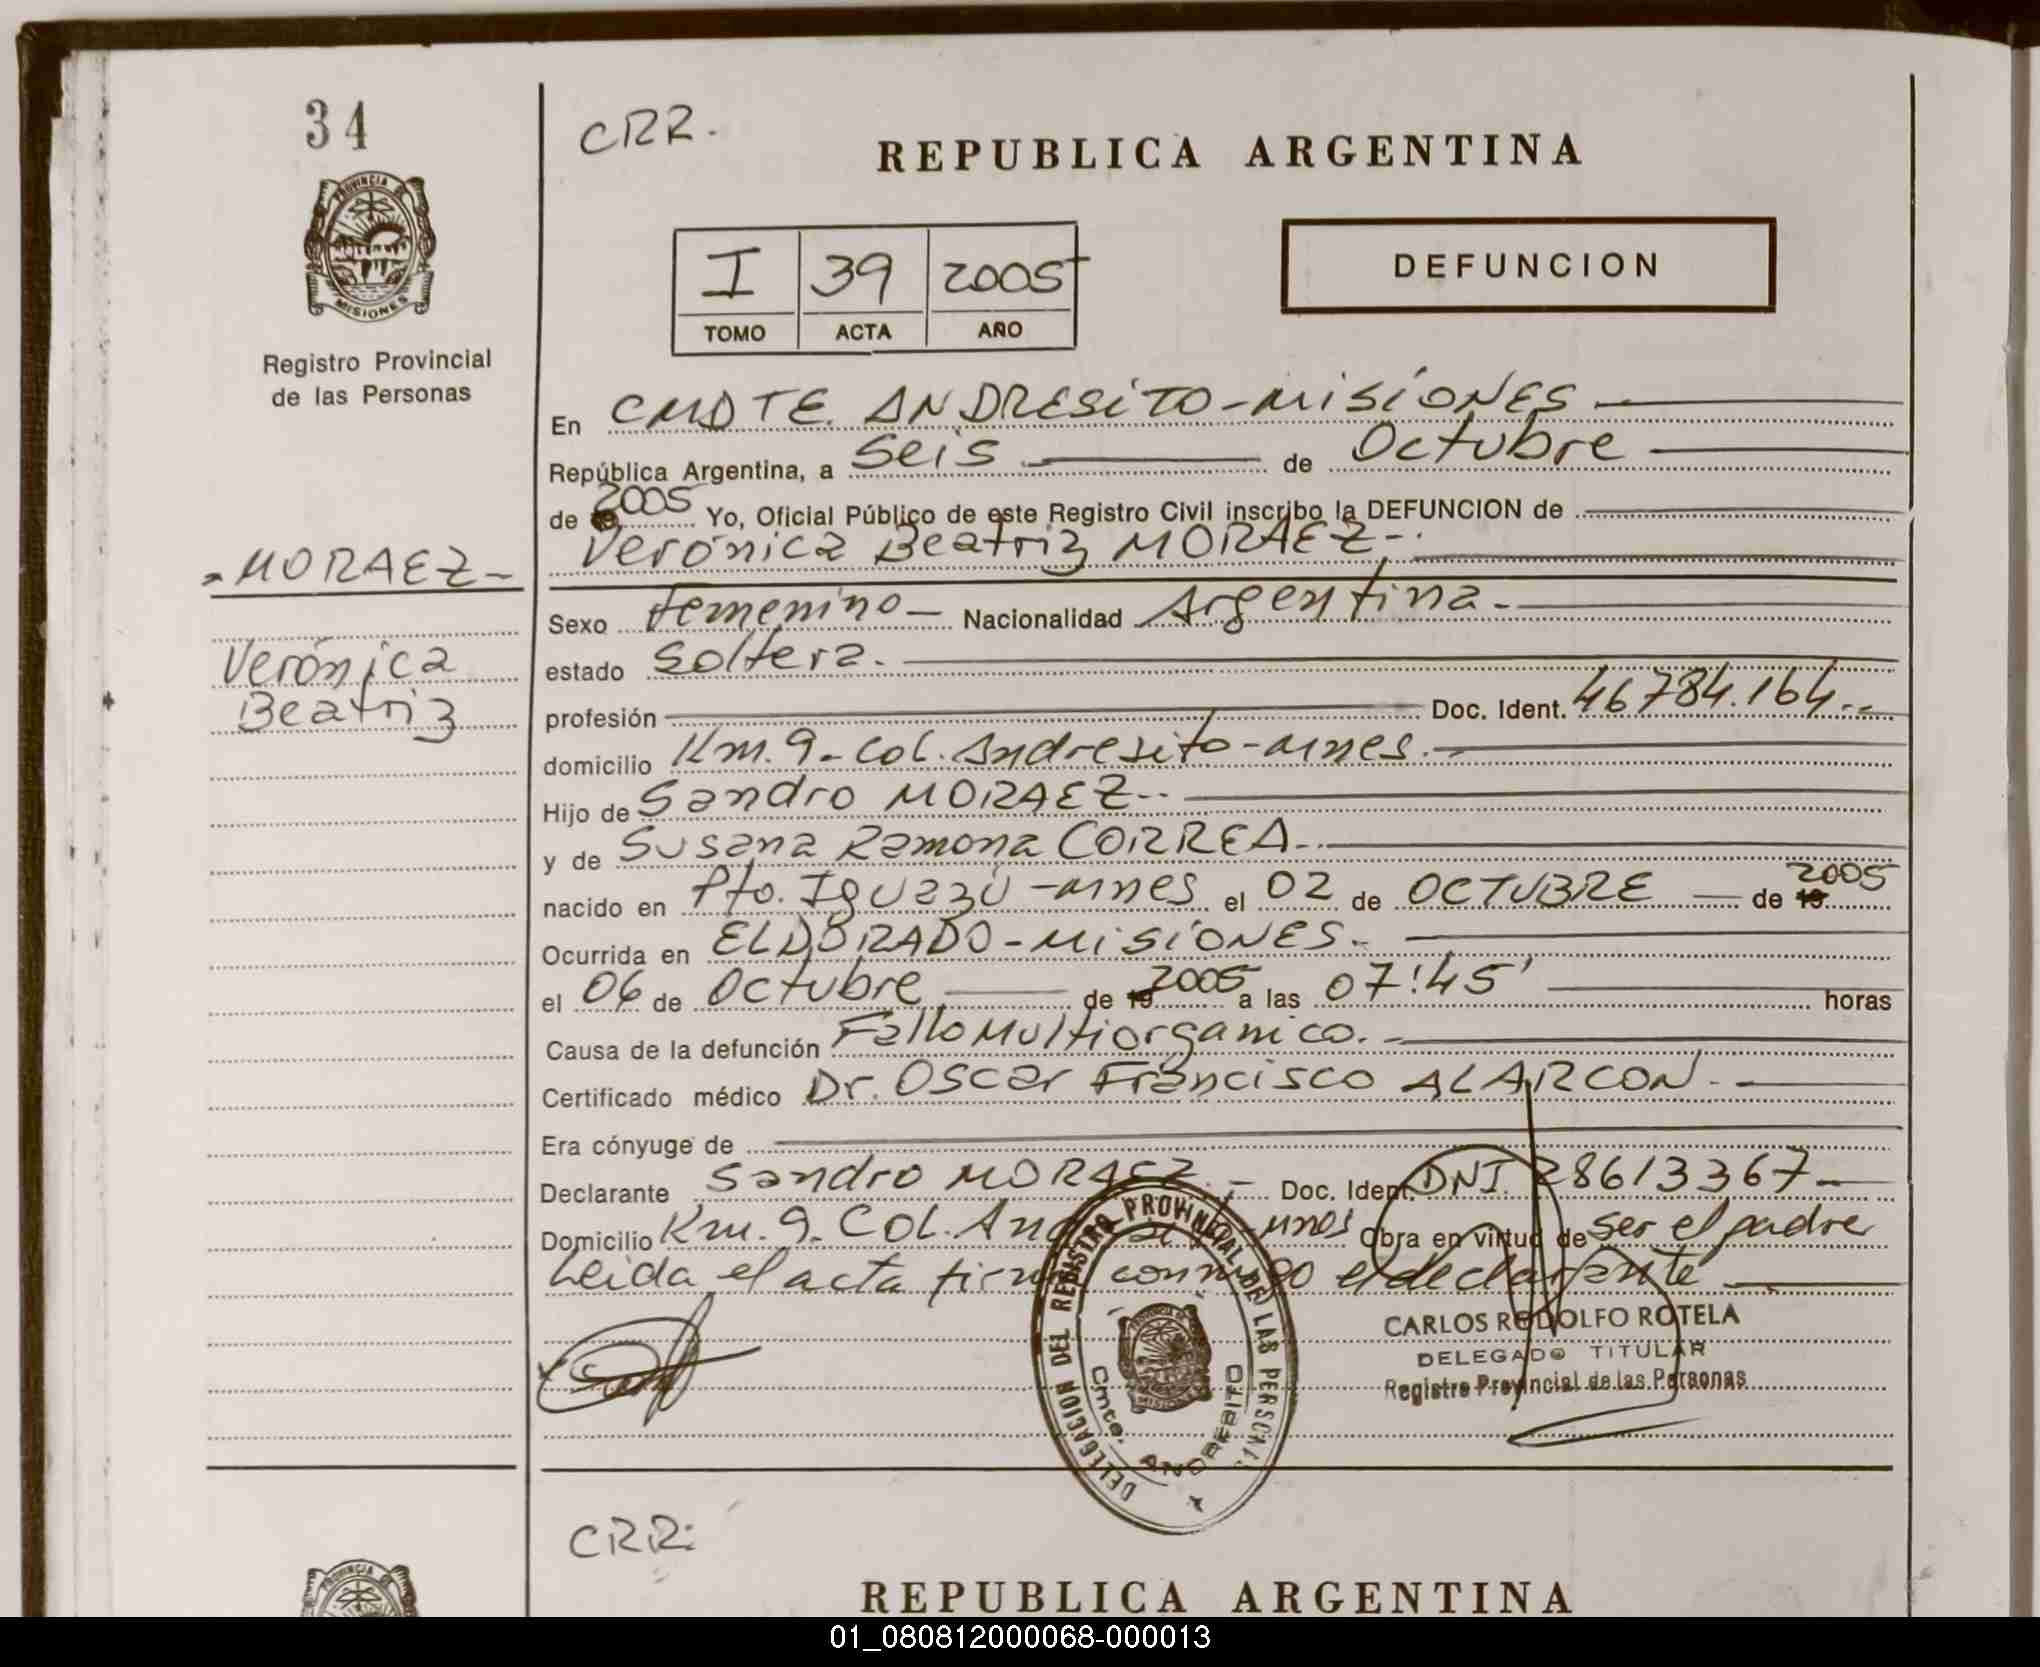 34
CRR.
REPUBLICA ARGENTINA
PROVINCIA DE
MISIONES
Registro Provincial
de las Personas
I 39 2005
TOMO ACTA AÑO
DEFUNCION
En CMDTE. ANDRESITO-MISIONES
República Argentina, a Seis de Octubre
de 19 2005 Yo, Oficial Público de este Registro Civil inscribo la DEFUNCION de
Verónica Beatriz MORAEZ-.
-MORAEZ-
Verónica
Beatriz
Sexo Femenino- Nacionalidad Argentina.-
estado Soltera.
profesión Doc. Ident. 46784.164.--
domicilio Km. 9-Col. Andresito-Mnes.-
Hijo de Sandro MORAEZ--
y de Susana Ramona CORREA.-
nacido en Pto. Iguazú-Mnes el 02 de OCTUBRE de 19 2005
Ocurrida en ELDORADO-MISIONES.-
el 06 de Octubre de 19 2005 a las 07:45' horas
Causa de la defunción Fallo Multiorganico.-
Certificado médico Dr. Oscar Francisco ALARCON.-
Era cónyuge de
Declarante Sandro MORAEZ.- Doc. Ident. DNI. 28613367-
Domicilio Km. 9-COL. Andresito-Mnes Obra en virtud de ser el padre
Leida el acta firma conmigo el declarante
DELEGACION DEL REGISTRO PROVINCIAL DE LAS PERSONAS
PROVINCIA DE
MISIONES
Cmte. ANDRESITO
CARLOS RODOLFO ROTELA
DELEGADO TITULAR
Registro Provincial de las Personas
CRR.
PROVINCIA DE
REPUBLICA ARGENTINA
01_080812000068-000013